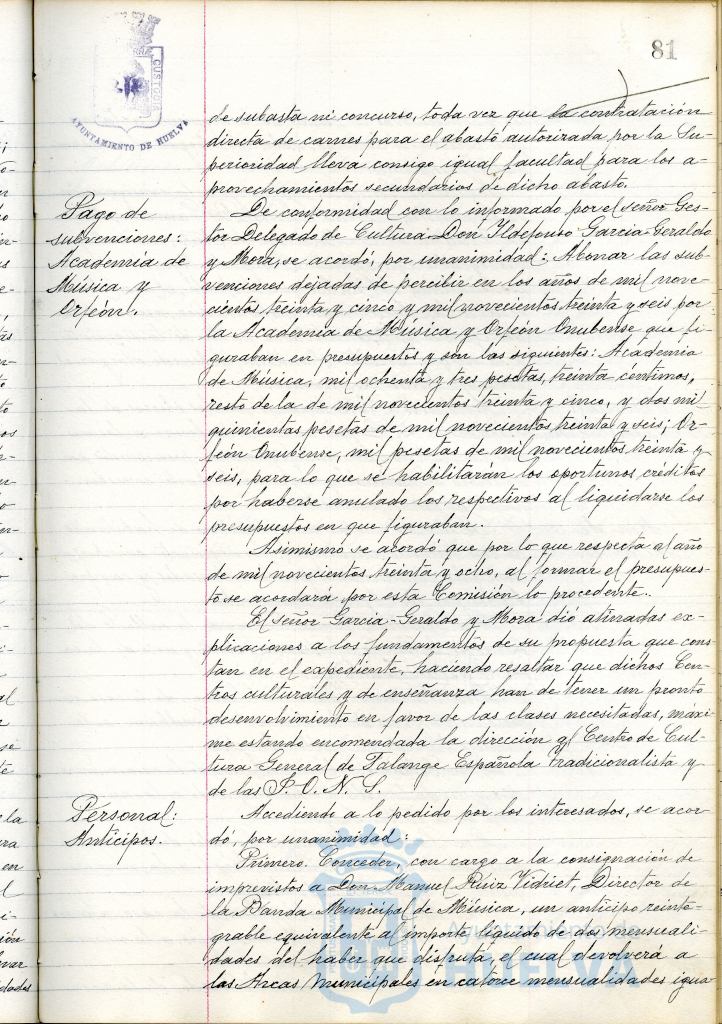 81
CUSTODIA
AYUNTAMIENTO DE HUELVA
de subasta ni concurso, toda vez que la contratación
directa de carnes para el abasto autorizada por la Su-
perioridad lleva consigo igual facultad para los a-
provechamientos secundarios de dicho abasto.
Pago de
subvenciones:
Academia de
Música y
Orfeón.
De conformidad con lo informado por el señor Ges-
tor Delegado de Cultura Don Ildefonso Garcia-Geraldo
y Mora, se acordó, por unanimidad: Abonar las sub-
venciones dejadas de percibir en los años de mil nove-
cientos treinta y cinco y mil novecientos treinta y seis por
la Academia de Música y Orfeón Onubense que fi-
guraban en presupuestos y son las siguientes: Academia
de Música, mil ochenta y tres pesetas, treinta céntimos,
resto de la de mil novecientos treinta y cinco, y dos mil
quinientas pesetas de mil novecientos treinta y seis; Or-
feón Onubense, mil pesetas de mil novecientos treinta y
seis, para lo que se habilitarán los oportunos créditos
por haberse anulado los respectivos al liquidarse los
presupuestos en que figuraban.
Asimismo se acordó que por lo que respecta al año
de mil novecientos treinta y ocho, al formar el presupues-
to se acordará por esta Comisión lo procedente.
El señor Garcia-Geraldo y Mora dió atinadas ex-
plicaciones a los fundamentos de su propuesta que cons-
tan en el expediente, haciendo resaltar que dichos Cen-
tros culturales y de enseñanza han de tener un pronto
desenvolvimiento en favor de las clases necesitadas, máxi-
me estando encomendada la dirección al Centro de Cul-
tura General de Falange Española Tradicionalista y
de las J. O. N. S.
Personal:
Anticipos.
Accediendo a lo pedido por los interesados, se acor-
dó, por unanimidad:
Primero. Conceder, con cargo a la consignación de
imprevistos a Don Manuel Ruiz Vidriet, Director de
la Banda Municipal de Música, un anticipo reinte-
grable equivalente al importe líquido de dos mensuali-
dades del haber que disfruta, el cual devolverá a
las Arcas municipales en catorce mensualidades igua-
HUELVA